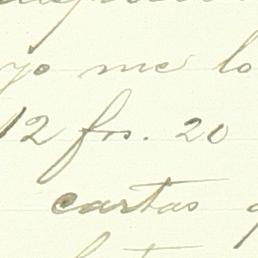 yo me lo
12 frs. 20
cartas